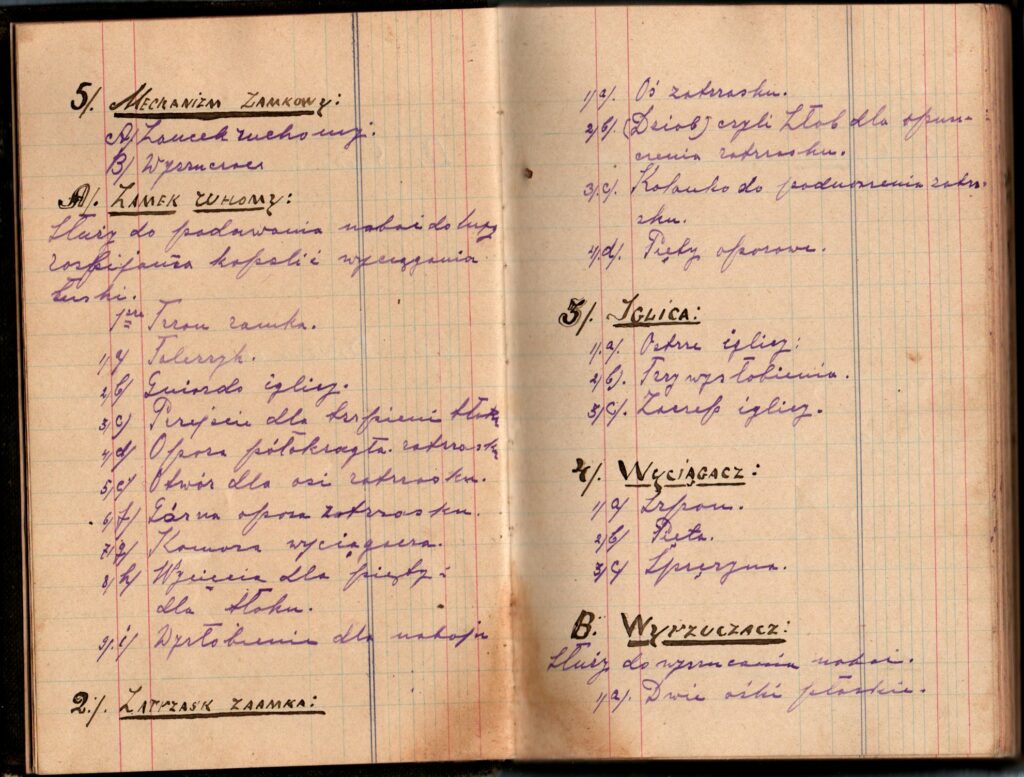 5/. MECHANIZM ZAMKOWY:
A/ Zamek ruchomy.
B/ Wyrzucacz
A/. ZAMEK RUHOMY:
Służy do podawania naboi do lufy
rozbijania kapsli i wyciągania
łuski.
1sze Trzon zamka.
1/a/ Talerzyk.
2/b/ Gniazdo iglicy.
3/c/ Przejście dla trzpieni tłoka
4/d/ Opora półokrągła zatrzasku
5/e/ Otwór dla osi zatrzasku.
6/f/ Górna opora zatrzasku.
7/g/ Komora wyciągacza.
8/h/ Wcięcia dla pięty i
dla tłoku.
9/i/ Wyżłobienie dla naboju
2./. ZATRZASK ZAAMKA:
1/a/. Oś zatrzasku.
2/b/. (Dziob) czyli żłob dla opusz-
czenia zatrzasku.
3/c/. Kolanko do podnoszenia zatrza-
sku.
4/d/. Pięty oporowe.
3/. IGLICA:
1/.a/. Ostrze iglicy:
2/b/. Trzy wyżłobienia.
3/c/. Zaczep iglicy.
4/. WYCIĄGACZ:
1/a/ Szpon.
2/b/ Pięta.
3/c/ Sprężyna.
B. WYRZUCZACZ:
Służy do wyrzucania naboi.
1/a/. Dwie ośki płaskie.